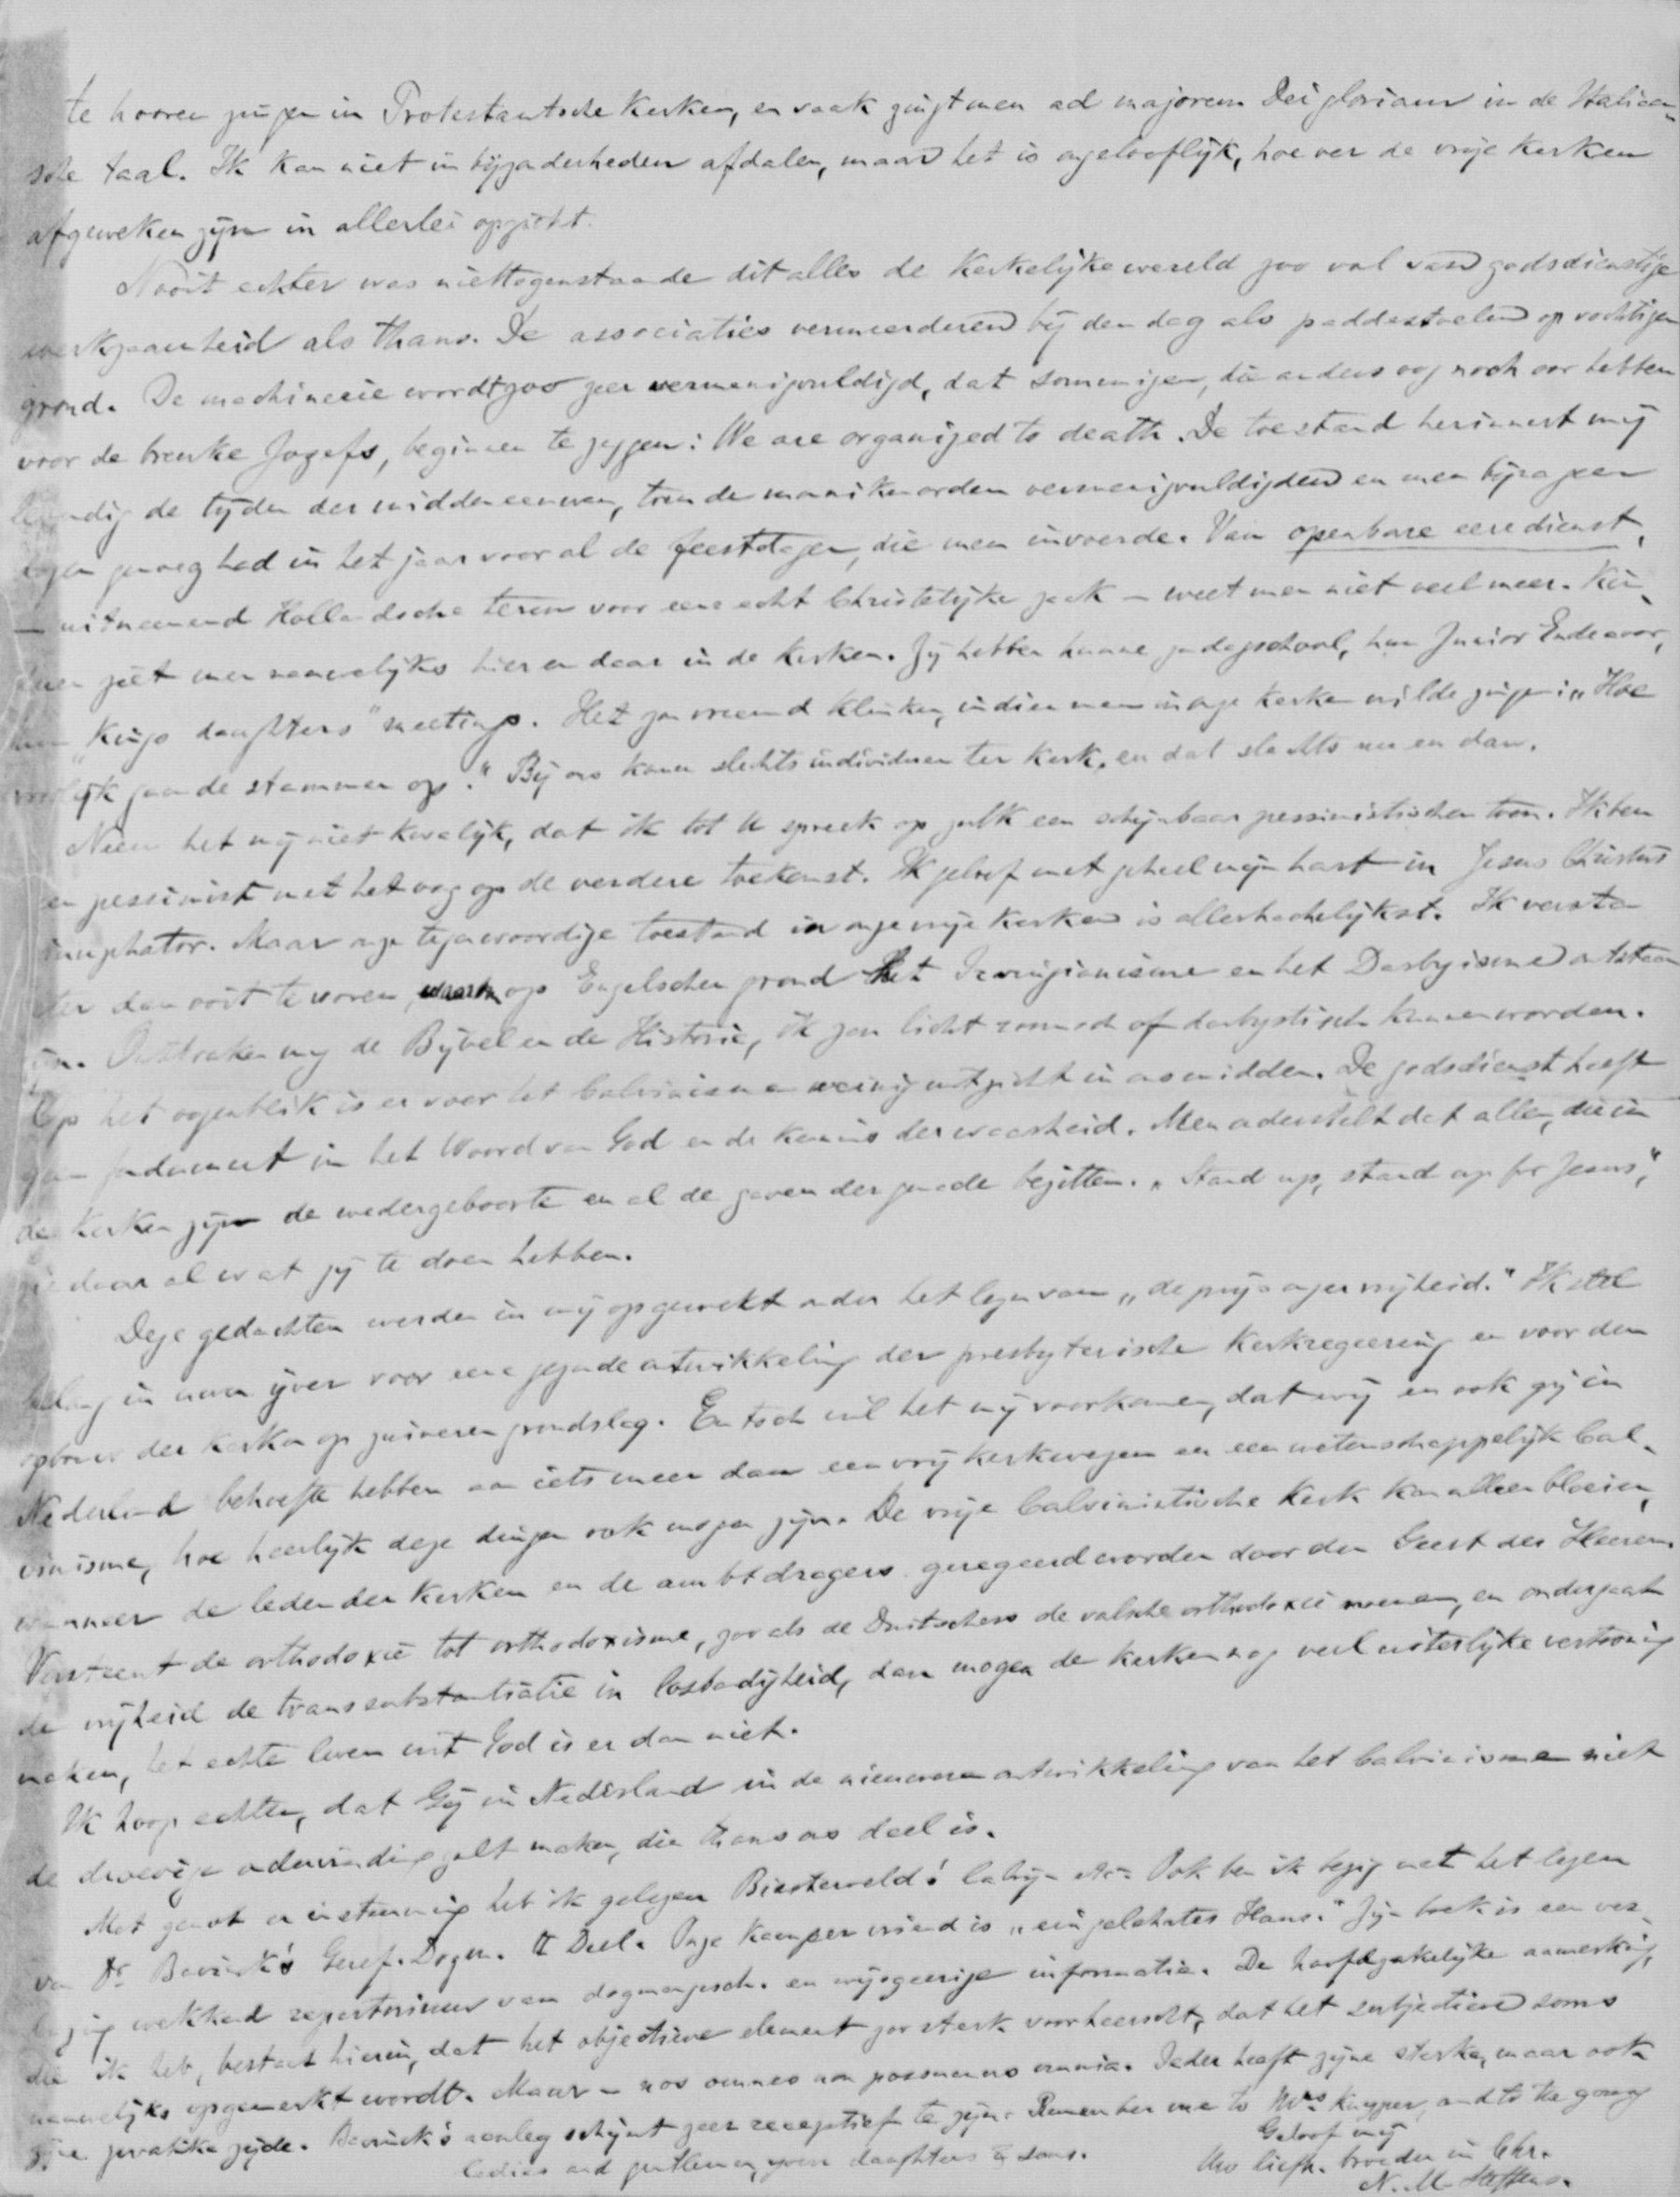 te hooren zingen in Protestantsche Kerken, en vaak zingt men ad majorem Dei gloriam in de Italiaan-
sche taal. Ik kan niet in bijzonderheden afdalen, maar het is ongelooflijk, hoe ver de vrije Kerken
afgeweken zijn in allerlei opzicht.
Nooit echter was niettegenstaande dit alles de Kerkelijke wereld zoo vol van godsdienstige
werkzaamheid als thans. De associaties vermeerderen bij den dag als paddestoelen op vochtigen
grond. De machinerie wordt zoo zeer vermenigvuldigd, dat sommigen, die anders oog noch oor hebben
voor de breuke Jozefs, beginnen te zeggen: We are organized to death. De toestand herinnert mij
levendig de tijden der middeneeuwen, toen de monnikenorden vermenigvuldigden en men bijna geen
dagen genoeg had in het jaar voor al de feestdagen, die men invoerde. Van openbare eeredienst,
— uitnemend Hollandsche term voor eene echt Christelijke zaak — weet men niet veel meer. Kin-
deren ziet men nauwelijks hier en daar in de Kerken. Zij hebben hunne zondagschool, hun Junior Endeavor,
hun „Kings daughters" meetings. Het zou vreemd klinken, indien men in onze kerken wilde zingen: „Hoe
vroolijk gaan de stammen op." Bij ons komen slechts individuen ter kerk, en dat slechts nu en dan.
Neem het mij niet kwalijk, dat ik tot U spreek op zulk een schijnbaar pessimistischen toon. Ik ben
een pessimist met het oog op de verdere toekomst. Ik geloof met geheel mijn hart in Jesus Christus
triumphator. Maar onze tegenwoordige toestand in onze vrije Kerken is allerhachelijkst. Ik versta
beter dan ooit te voren, op Engelschen grond het Irvingianisme en het Darbyisme ontstaan
zijn. Ontbraken mij de Bijbel en de Historie, ik zou licht roomsch of darbystisch kunnen worden.
Op het oogenblik is er voor het Calvinisme weinig uitzicht in ons midden. De godsdienst heeft
geen fundament in het Woord van God en de kennis der waarheid. Men onderstelt dat allen, die in
de Kerken zijn de wedergeboorte en al de gaven der genade bezitten. „Stand up, stand up for Jesus",
zie daar al wat zij te doen hebben.
Deze gedachten werden in mij opgewekt onder het lezen van „de prijs onzer vrijheid." Ik stel
belang in uwen ijver voor eene gezonde ontwikkeling der presbyterische Kerkregeering en voor den
opbouw der kerken op zuiveren grondslag. En toch wil het mij voorkomen, dat wij en ook gij in
Nederland behoefte hebben aan iets meer dan een vrij kerkwezen en een wetenschappelijk Cal-
vinisme, hoe heerlijk deze dingen ook mogen zijn. De vrije Calvinistische Kerk kan alleen bloeien,
wanneer de leden der kerken en de ambtdragers geregeerd worden door den Geest des Heeren.
Versteent de orthodoxie tot orthodoxisme, zooals de Duitschers de valsche orthodoxie noemen, en ondergaat
de vrijheid de transsubstantiatie in losbandigheid, dan mogen de kerken nog veel uiterlijke vertooning
maken, het echte leven uit God is er dan niet.
Ik hoop echter, dat Gij in Nederland in de nieuwere ontwikkeling van het Calvinisme niet
de droevige ondervinding zult maken, die thans ons deel is.
Met genot en instemming heb ik gelezen Biesterveld's Calvijn etc. Ook ben ik bezig met het lezen
van Dr. Bavinck's Geref. Dogm. II Deel. Onze Kamper vriend is „ein gelehrtes Haus." Zijn boek is een ver-
bazing wekkend repertorium van dogmengesch. en wijsgeerige informatie. De hoofdzakelijke aanmerking,
die ik heb, bestaat hierin, dat het objectieve element zoo sterk voorheerscht, dat het subjectieve soms
nauwelijks opgemerkt wordt. Maar — nos omnes non possumus omnia. Ieder heeft zijne sterke, maar ook
zijne zwakke zijde. Bavinck's aanleg schijnt zeer receptief te zijn. Remember me to Mrs. Kuyper, and to the young
ladies and gentlemen, your daughters & sons.
Geloof mij
Uw liefh. broeder in Chr.
N. M. Steffens.